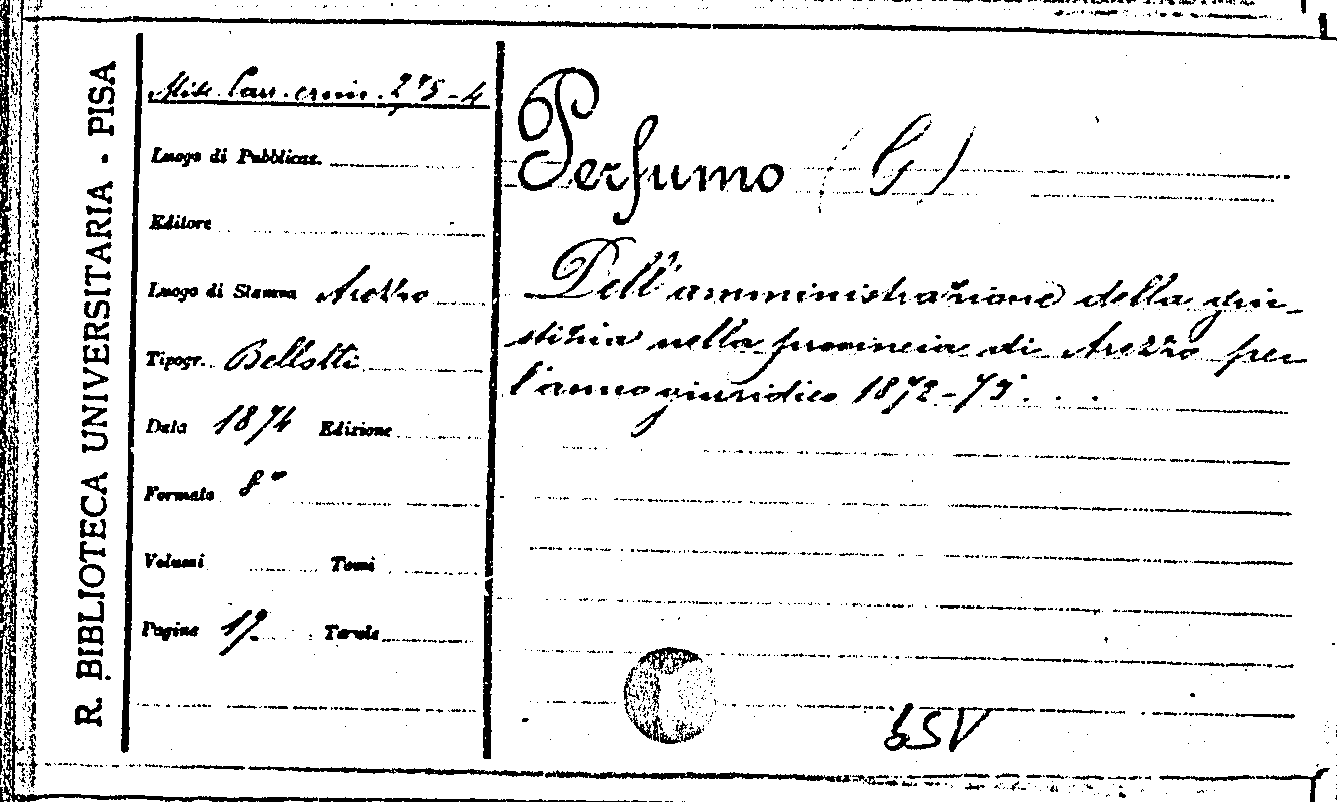 R. BIBLIOTECA UNIVERSITARIA - PISA
Misc. Carr. crim. 275-4
Luogo di Pubblicaz.
Editore
Luogo di Stampa Arezzo
Tipogr. Bellotti
Data 1874 Edizione
Formato 8°
Volumi Tomi
Pagine 19 Tavole
Perfumo (G)
Dell'amministrazione della giu-
stizia nella provincia di Arezzo per
l'anno giuridico 1872-73. . .
bSV